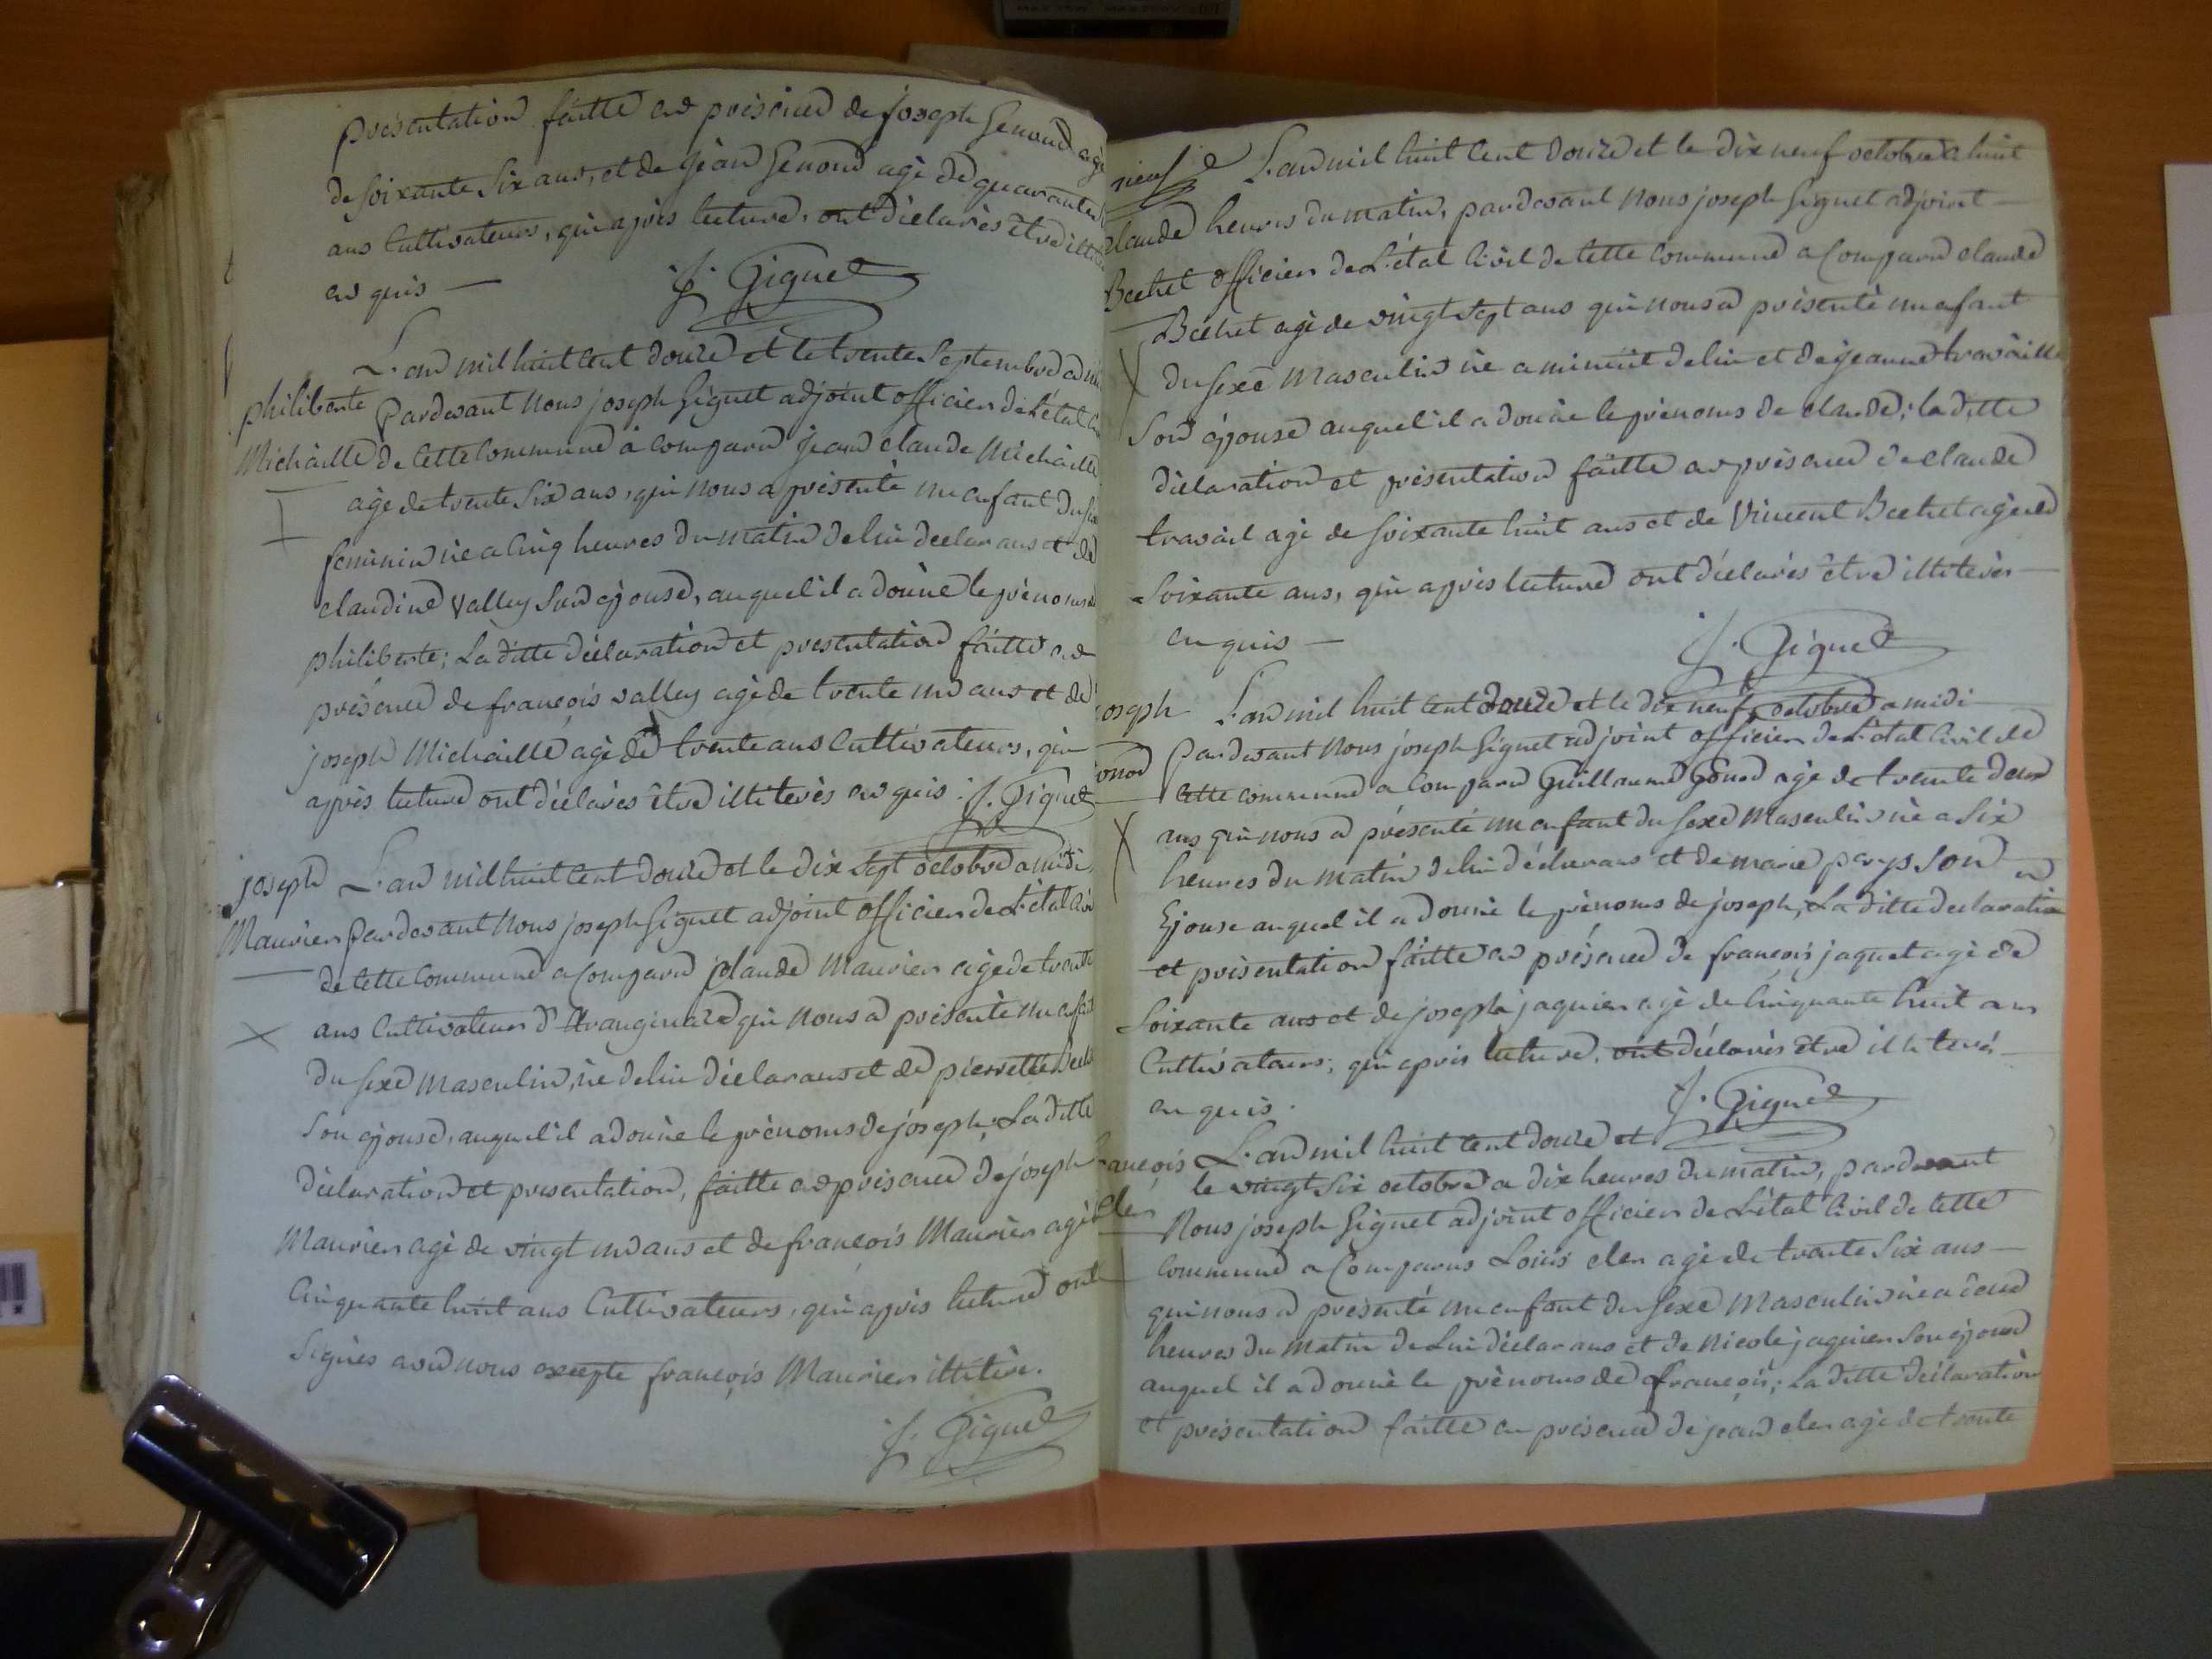 presentation faitte en présence de joseph Genoud agé
de soixante six ans, et de jean Genoud agé de quarante
ans Cultivateurs, qui après lecture, ont déclarès être
en quis — J. Giguet
L'an mil huit cent douze et le trente Septembre a
philiberte Pardevant Nous joseph Giguet adjoint officier de L'état
Michaille de Cette Commune à Comparu jean claude Michaille
agé de trente Six ans, qui nous a présenté un enfant du
feminin né a Cinq heures du matin de lui declarans et de
claudine Valley Son épouse, auquel il a donné le prénoms de
philiberte; La ditte déclaration et presentation faitte en
présence de françois valley agé de trente un ans et de
joseph Michaille agé de trente ans Cultivateurs, qui
après lecture ont déclarès être illiterès en quis. J. Giguet
joseph L'an mil huit cent douze et le dix Sept octobre a midi
Maurier Pardevant Nous joseph Giguet adjoint officier de L'état Civil
de Cette Commune a Comparu claude Maurier agé de trente
ans Cultivateur qui nous a présenté un enfant
du sexe masculin, né de lui déclarans et de pierrette
Son épouse, auquel il a donné le prénoms de joseph, La ditte
déclaration et presentation, faitte en présence de joseph
Maurier agé de vingt un ans et de françois Maurier agé
Cinquante huit ans Cultivateurs, qui après lecture ont
Signés avec nous excepte françois Maurier illitére.
J. Giguet
neuf L'an mil huit Cent Douze et le Dix neuf octobre a huit
claude heures du matin, pardevant Nous joseph Giguet adjoint
Bechet officier de L'état Civil de Cette Commune a Comparu claude
Bechet agé de vingt Sept ans qui nous a présenté un enfant
X du Sexe Masculin né a minuit de lui et de jeanne travaille
Son épouse auquel il a donné le prénoms de claude; la ditte
déclaration et présentation faitte en présence de claude
travail agé de soixante huit ans et de Vincent Bechet agé de
Soixante ans, qui après lecture ont déclarés être illiterès
en quis — J. Giguet
joseph L'an mil huit Cent Douze et le dix neuf octobre a midi
Pardevant Nous joseph Giguet adjoint officier de L'état Civil de
Cette commune a Comparu Guillaume Gonod agé de trente deux
ans qui nous a présenté un enfant du Sexe Masculin né a Six
X heures du matin de lui déclarans et de marie parys Son
Epouse auquel il a donné le prénoms de joseph, La ditte declaration
et présentation faitte en présence de françois jaquet agé de
Soixante ans et de joseph jaquier agé de Cinquante huit ans
Cultivateurs; qui après lecture, ont déclarès être illiteré
en quis. J. Giguet
françois L'an mil huit Cent Douze et
cler le vingt Six octobre a dix heures du matin, pardevant
Nous joseph Giguet adjoint officier de L'état Civil de Cette
Commune a Comparus Louis cler agé de trente Six ans
qui nous a présenté un enfant du Sexe Masculin né a deux
heures du matin de Lui déclarans et de Nicole jaquier Son épouse
auquel il a donné le prénoms de françois; La ditte déclaration
et présentation faitte en présence de jean cler agé de trente